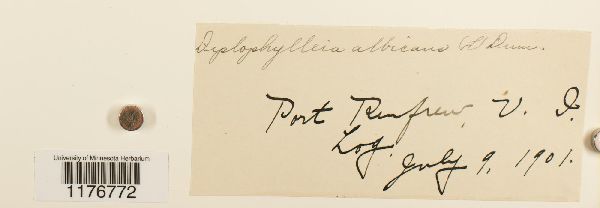 Diplophylleia albicans (L) Dum.
Port Renfrew, V. I.
Log. July 9, 1901.
University of Minnesota Herbarium
1176772